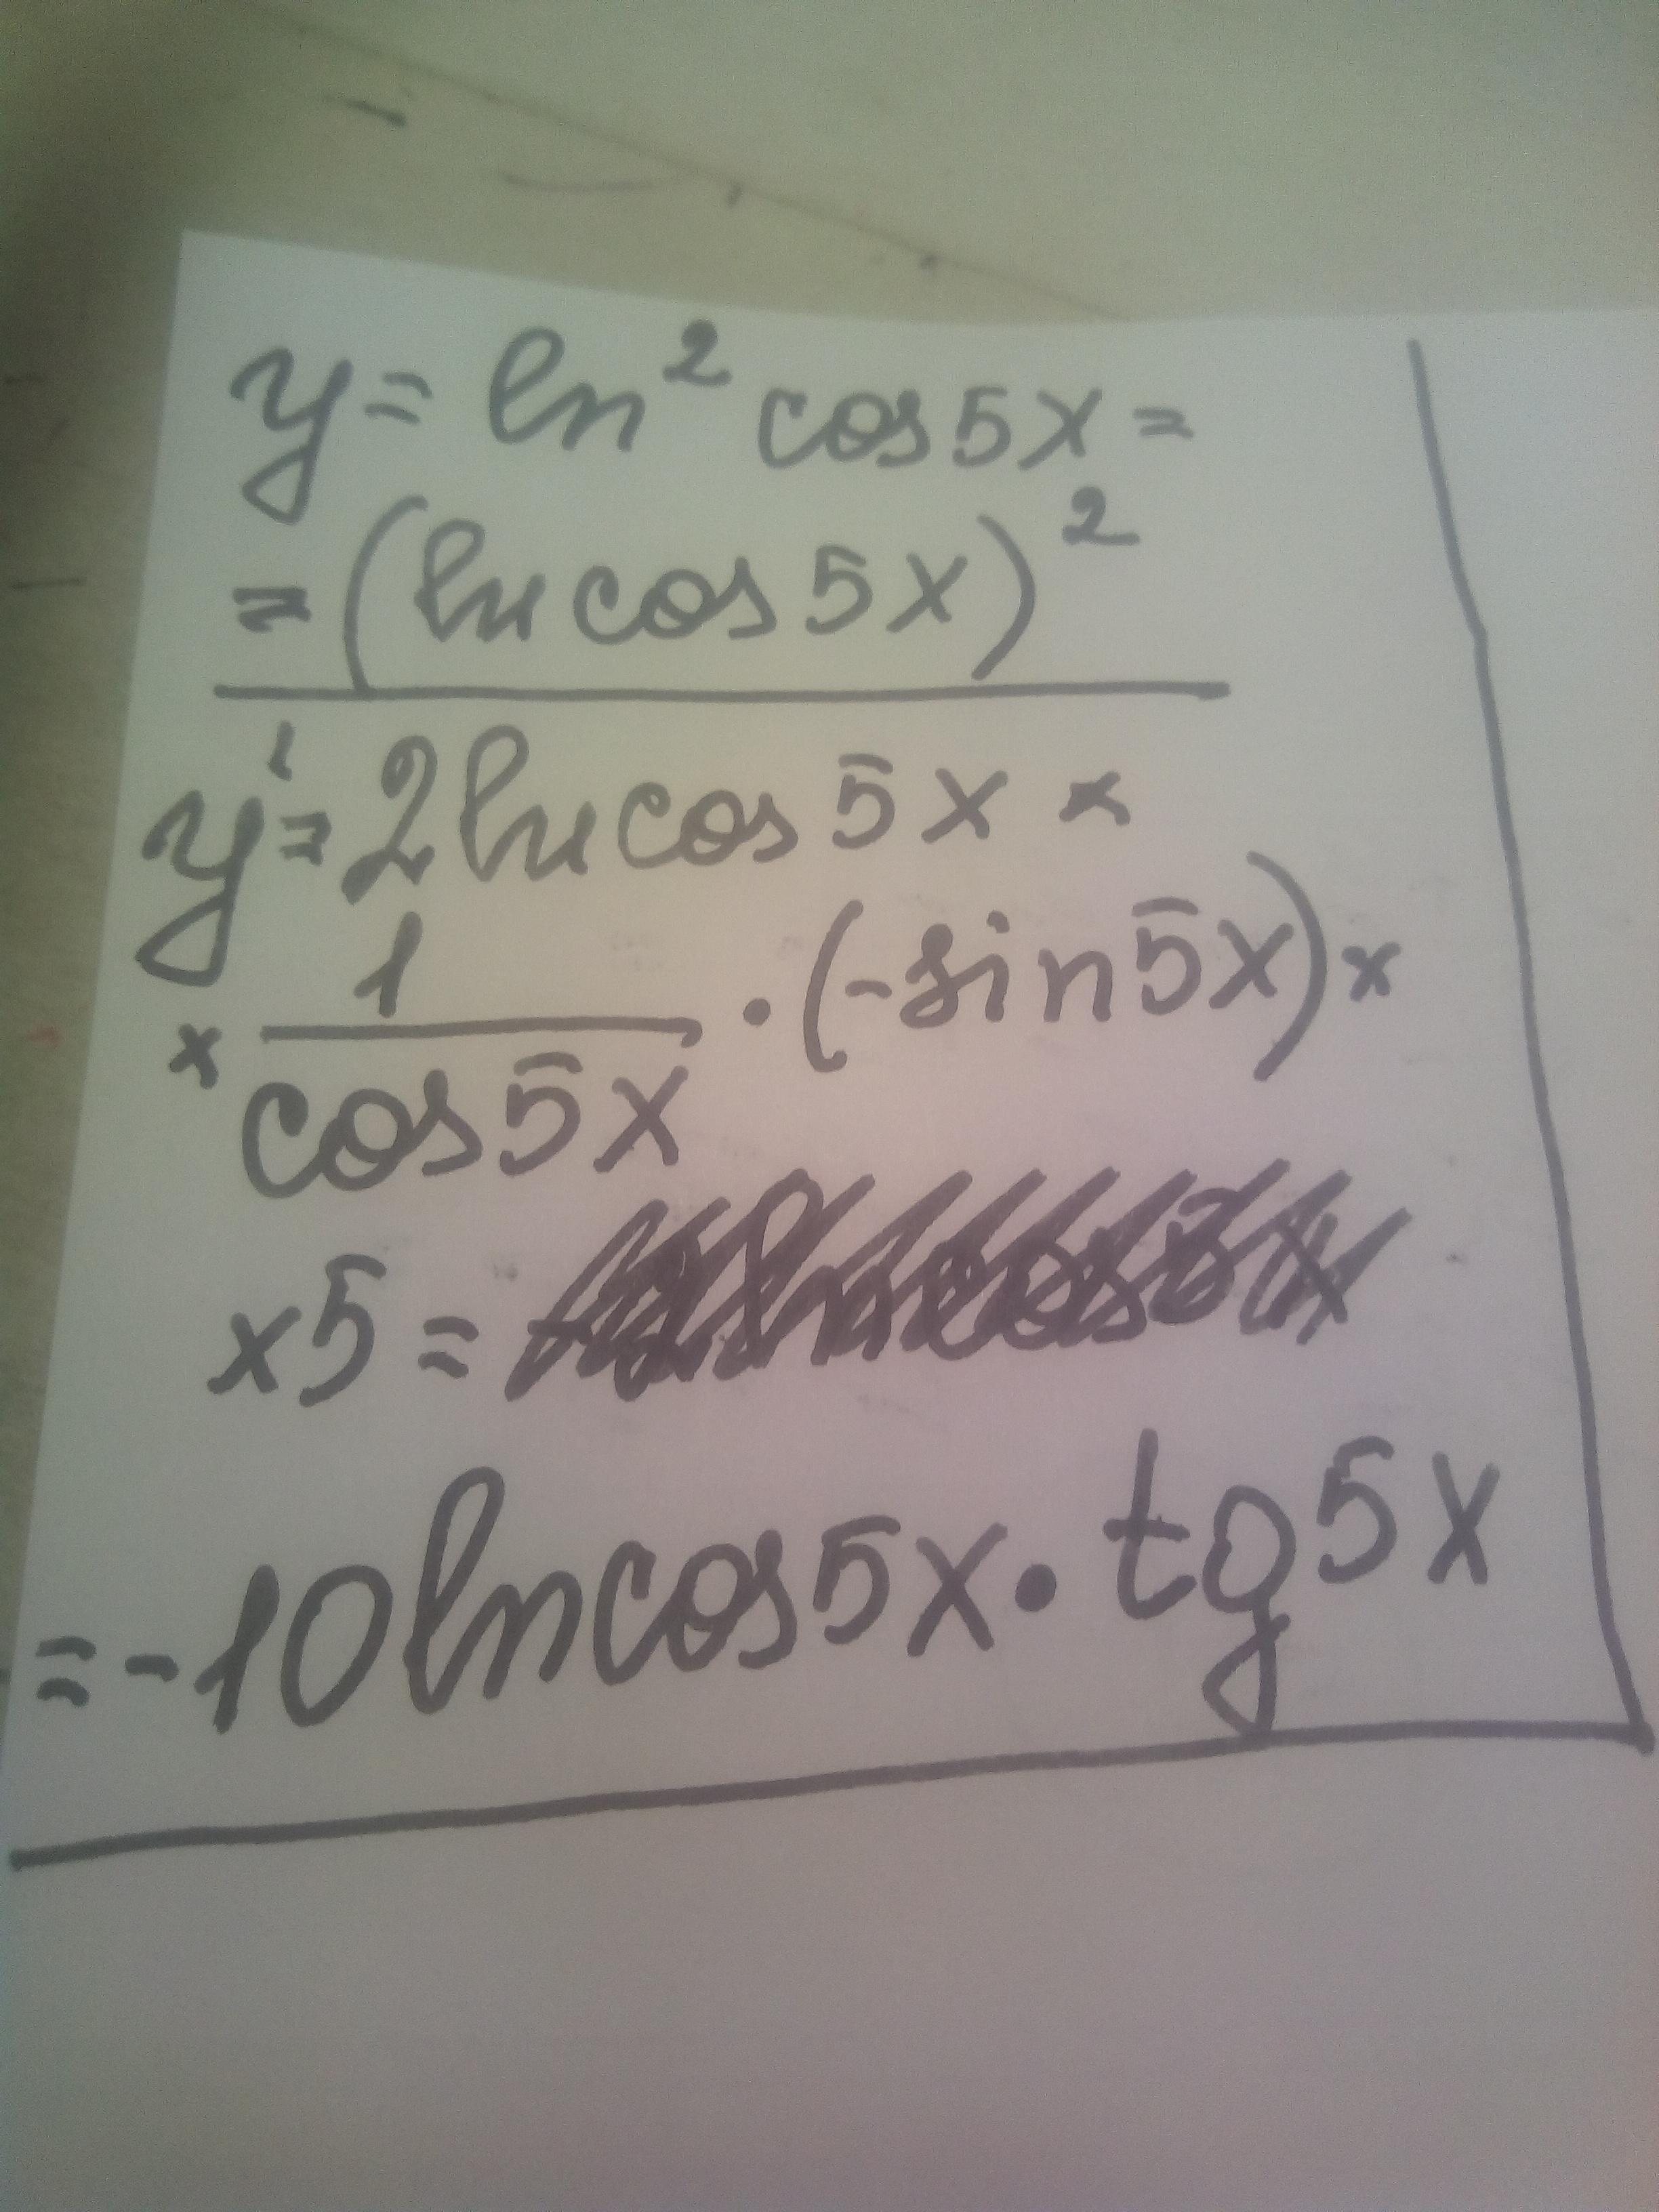 y = ln² cos 5x =
= (ln cos 5x)²
y' = 2 ln cos 5x ×
× 1/cos 5x · (-sin 5x) ×
× 5 =
= -10 ln cos 5x · tg 5x